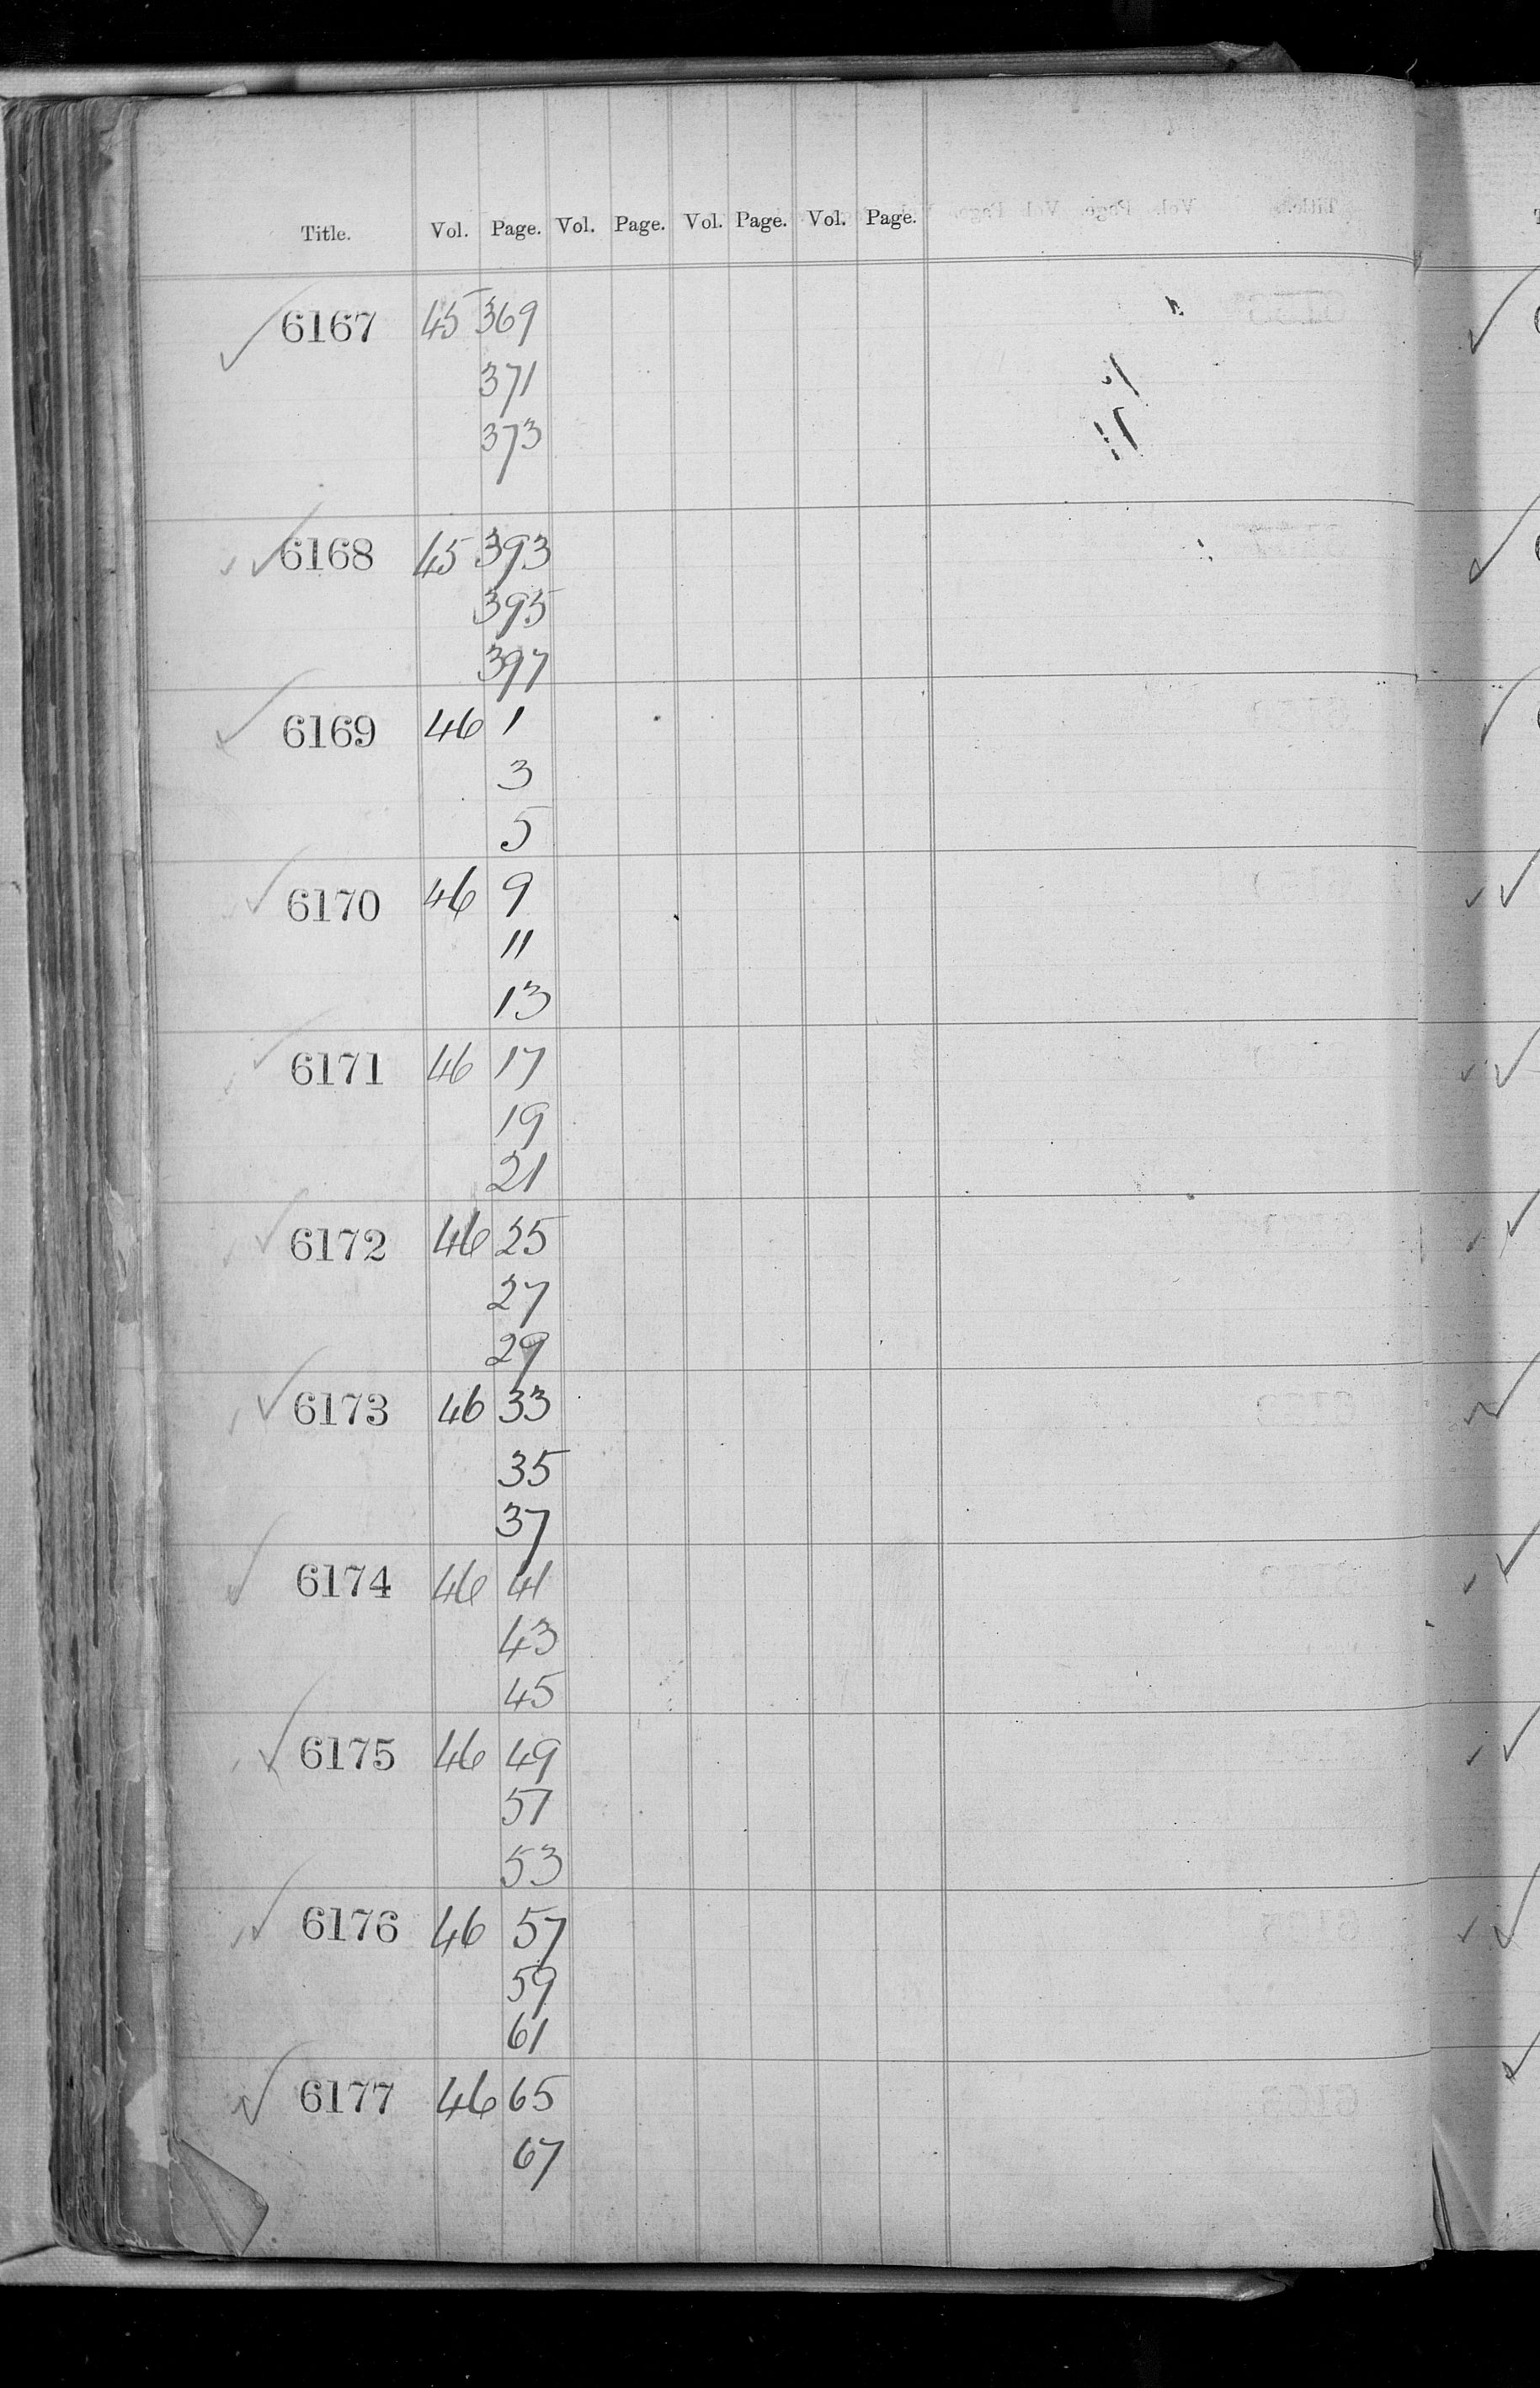 Title. Vol. Page. Vol. Page. Vol. Page. Vol. Page.
✓ 6167 45 369
371
373
✓ ✓ 6168 45 393
395
397
✓ 6169 46 1
3
5
✓ 6170 46 9
11
13
✓ 6171 46 17
19
21
✓ 6172 46 25
27
29
✓ 6173 46 33
35
37
✓ 6174 46 41
43
45
✓ 6175 46 49
51
53
✓ 6176 46 57
59
61
✓ 6177 46 65
67